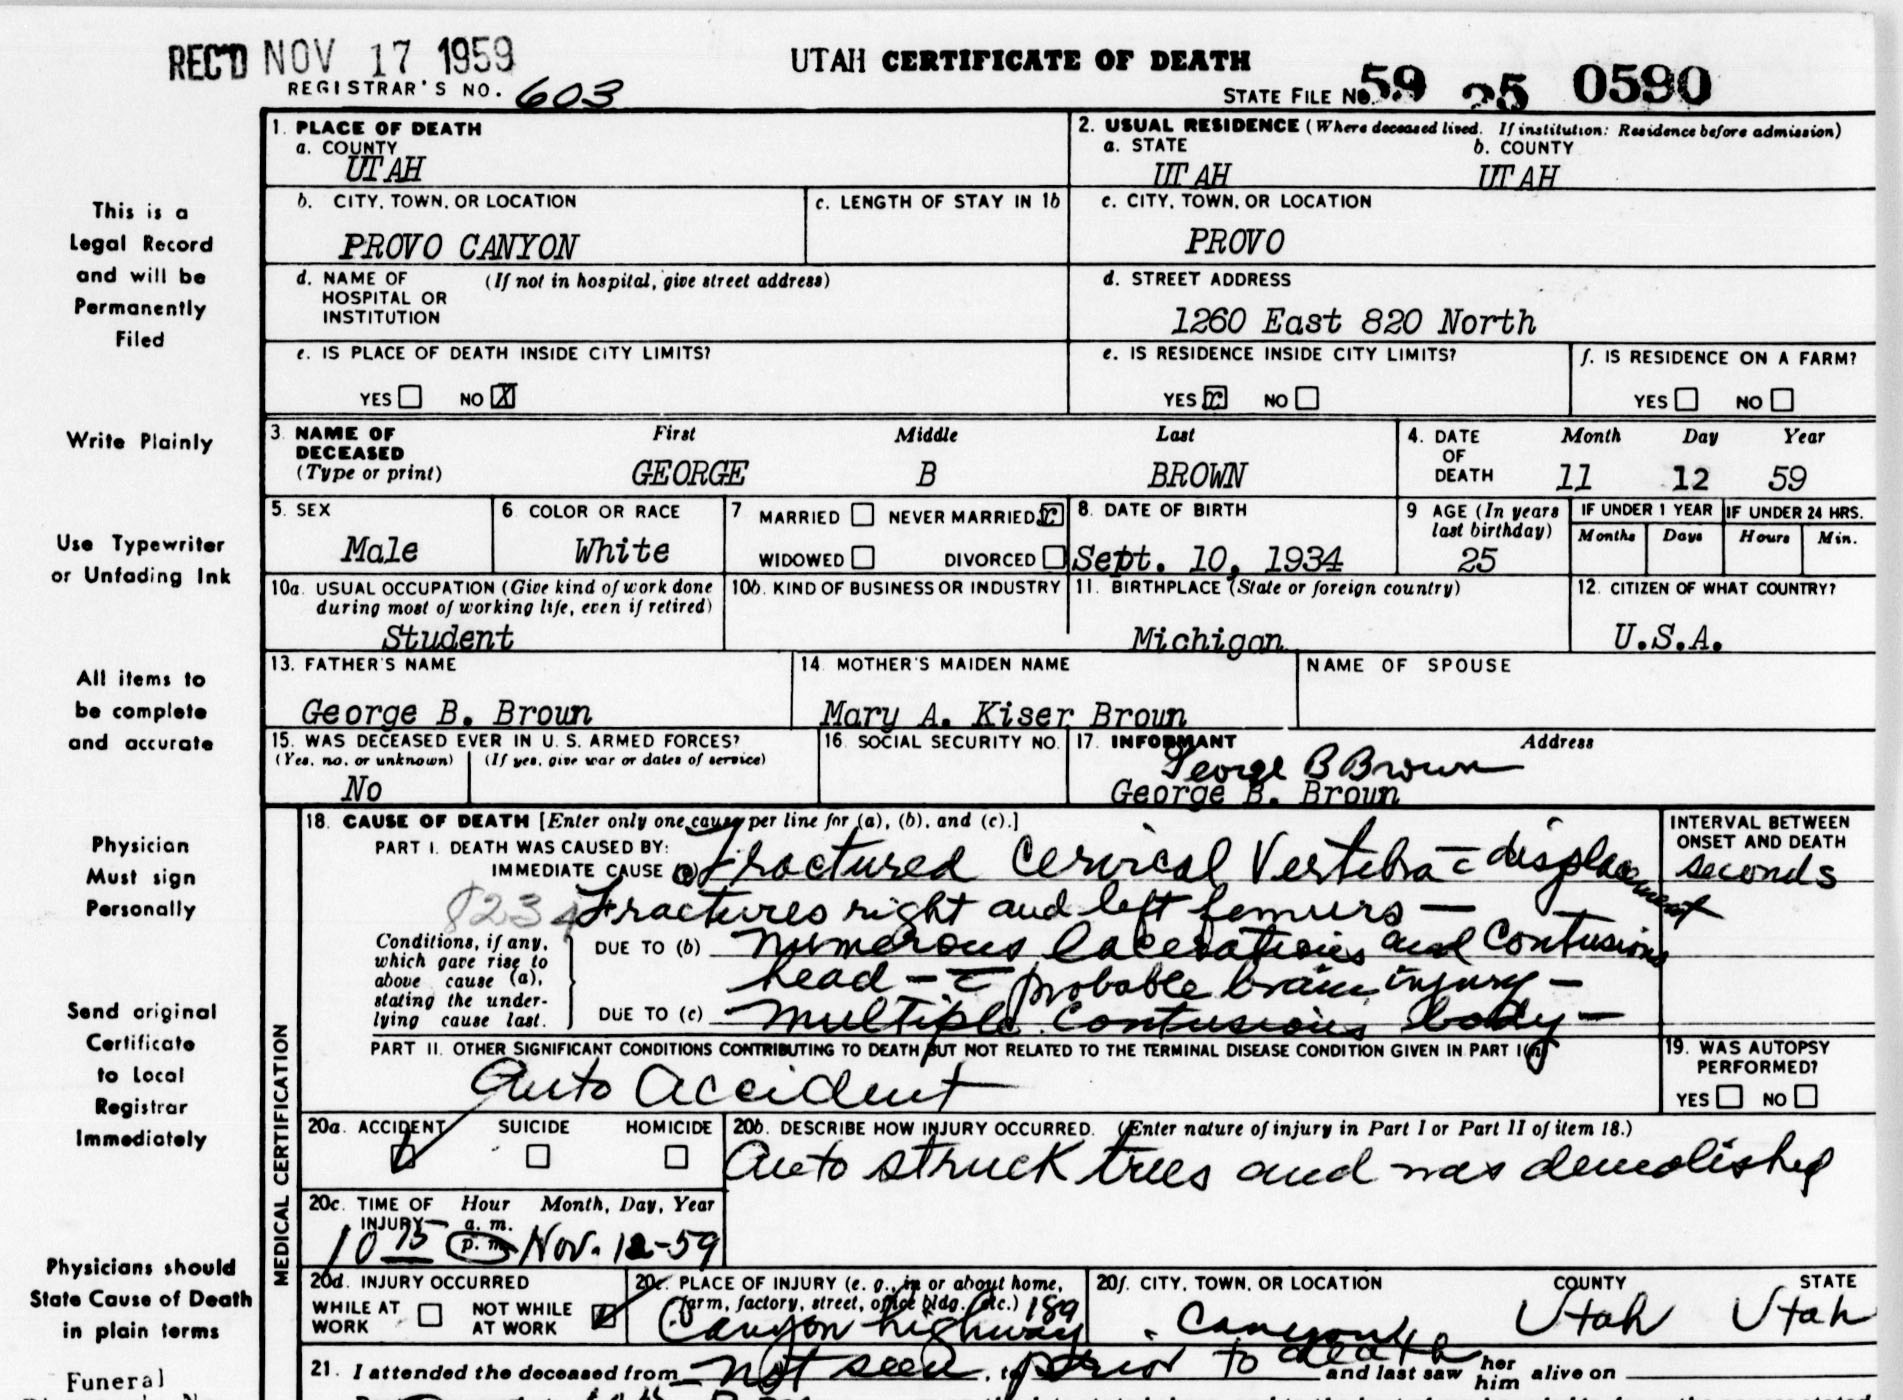 REC'D NOV 17 1959
UTAH CERTIFICATE OF DEATH
REGISTRAR'S NO. 603
STATE FILE No. 59 25 0590
This is a
Legal Record
and will be
Permanently
Filed
Write Plainly
Use Typewriter
or Unfading Ink
All items to
be complete
and accurate
Physician
Must sign
Personally
Send original
Certificate
to Local
Registrar
Immediately
Physicians should
State Cause of Death
in plain terms
Funeral
1. PLACE OF DEATH
a. COUNTY
UTAH
2. USUAL RESIDENCE (Where deceased lived. If institution: Residence before admission)
a. STATE b. COUNTY
UTAH UTAH
b. CITY, TOWN, OR LOCATION
PROVO CANYON
c. LENGTH OF STAY IN 1b
c. CITY, TOWN, OR LOCATION
PROVO
d. NAME OF (If not in hospital, give street address)
HOSPITAL OR
INSTITUTION
d. STREET ADDRESS
1260 East 820 North
e. IS PLACE OF DEATH INSIDE CITY LIMITS?
YES NO X
e. IS RESIDENCE INSIDE CITY LIMITS?
YES r NO
f. IS RESIDENCE ON A FARM?
YES NO
3. NAME OF First Middle Last
DECEASED
(Type or print) GEORGE B BROWN
4. DATE Month Day Year
OF
DEATH 11 12 59
5. SEX
Male
6. COLOR OR RACE
White
7 MARRIED NEVER MARRIED r
WIDOWED DIVORCED
8. DATE OF BIRTH
Sept. 10, 1934
9 AGE (In years
last birthday)
25
IF UNDER 1 YEAR
Months Days
IF UNDER 24 HRS.
Hours Min.
10a. USUAL OCCUPATION (Give kind of work done
during most of working life, even if retired)
Student
10b. KIND OF BUSINESS OR INDUSTRY
11. BIRTHPLACE (State or foreign country)
Michigan
12. CITIZEN OF WHAT COUNTRY?
U.S.A.
13. FATHER'S NAME
George B. Broun
14. MOTHER'S MAIDEN NAME
Mary A. Kiser Broun
NAME OF SPOUSE
15. WAS DECEASED EVER IN U. S. ARMED FORCES?
(Yes, no, or unknown) (If yes, give war or dates of service)
No
16. SOCIAL SECURITY NO.
17. INFORMANT Address
George B Brown
George B. Broun
MEDICAL CERTIFICATION
18. CAUSE OF DEATH [Enter only one cause per line for (a), (b), and (c).]
PART I. DEATH WAS CAUSED BY:
IMMEDIATE CAUSE (a) Fractured Cervical Vertebra c displacement
8234 Fractures right and left femurs —
Conditions, if any,
which gave rise to
above cause (a),
stating the under-
lying cause last.
DUE TO (b) numerous lacerations and contusions
head - c probable brain injury -
DUE TO (c) multiple contusions body -
INTERVAL BETWEEN
ONSET AND DEATH
seconds
PART II. OTHER SIGNIFICANT CONDITIONS CONTRIBUTING TO DEATH BUT NOT RELATED TO THE TERMINAL DISEASE CONDITION GIVEN IN PART I(a)
Auto accident
19. WAS AUTOPSY
PERFORMED?
YES NO
20a. ACCIDENT SUICIDE HOMICIDE
20b. DESCRIBE HOW INJURY OCCURRED. (Enter nature of injury in Part I or Part II of item 18.)
Auto struck trees and was demolished
20c. TIME OF Hour Month, Day, Year
INJURY a. m.
10 15 p. m. Nov. 12-59
20d. INJURY OCCURRED
WHILE AT NOT WHILE
WORK AT WORK
20e. PLACE OF INJURY (e. g., in or about home,
farm, factory, street, office bldg., etc.) 189
Canyon highway
20f. CITY, TOWN, OR LOCATION COUNTY STATE
Canyon Utah Utah
21. I attended the deceased from not seen, to prior to death and last saw her him alive on